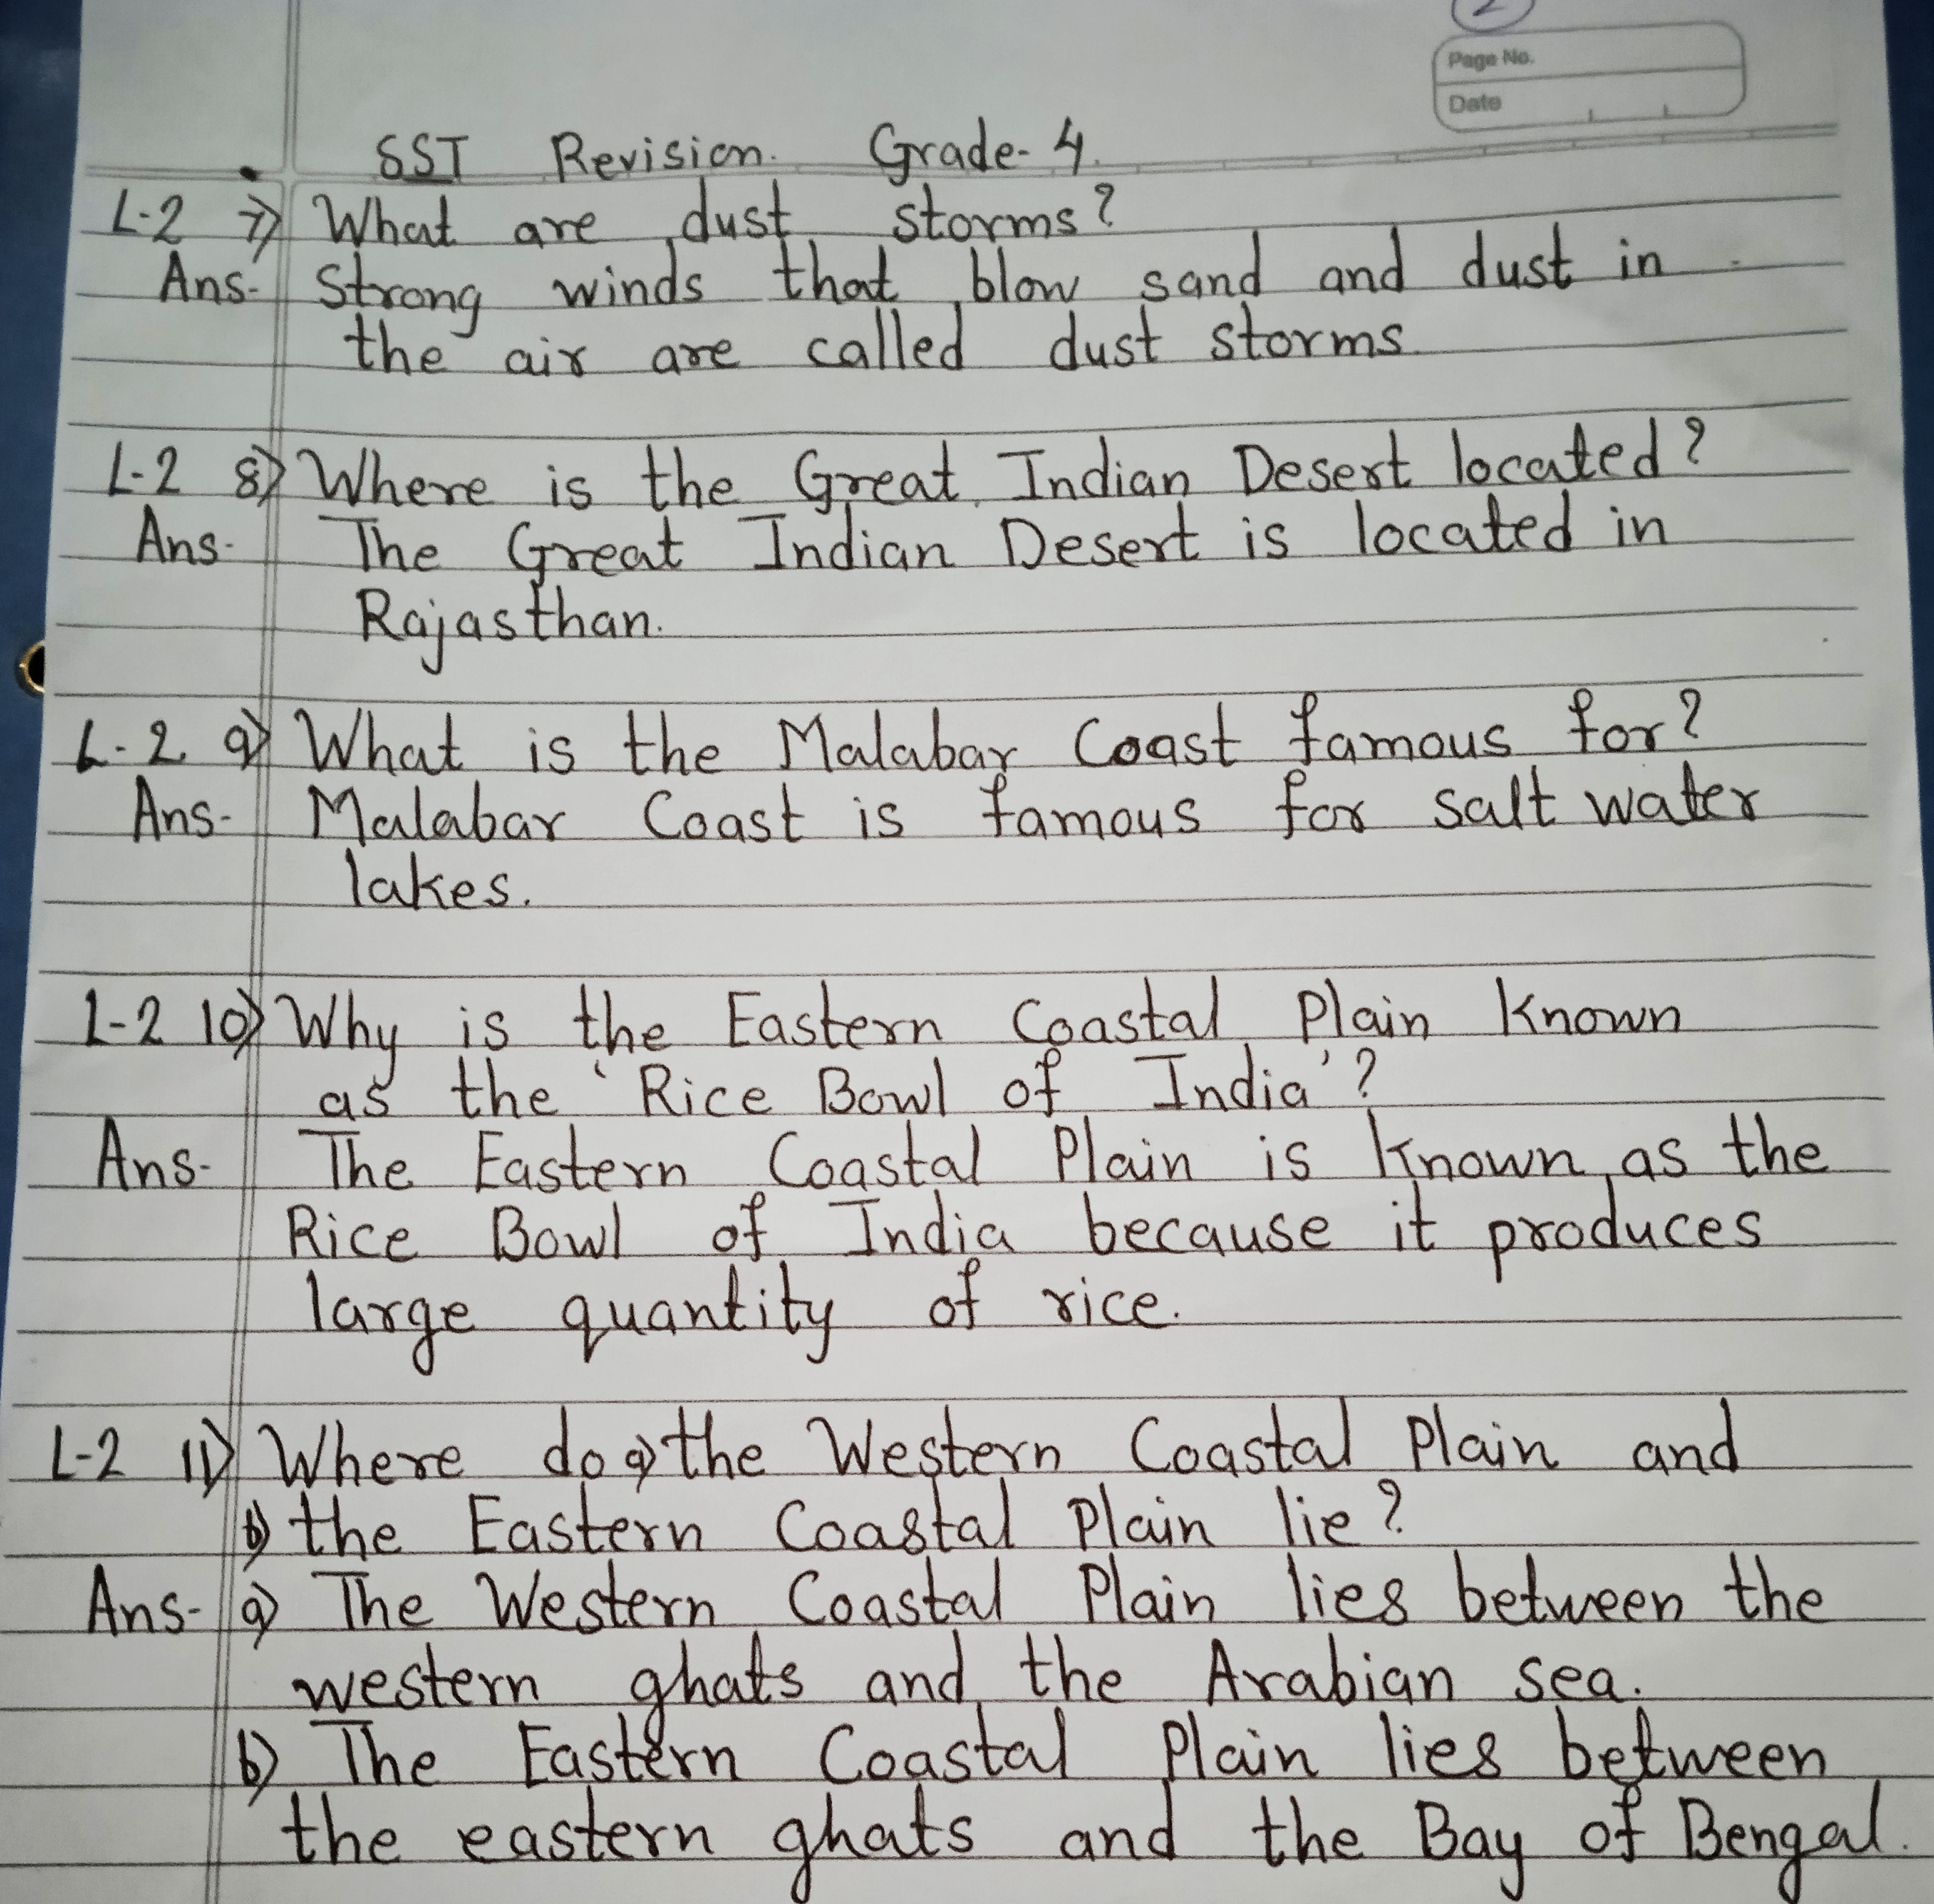 2
Page No.
Date
SST Revision. Grade-4.
L-2 7) What are dust storms?
Ans- Strong winds that blow sand and dust in
the air are called dust storms.
L-2 8) Where is the Great Indian Desert located?
Ans- The Great Indian Desert is located in
Rajasthan.
L-2 9) What is the Malabar Coast famous for?
Ans- Malabar Coast is famous for salt water
lakes.
L-2 10) Why is the Eastern Coastal Plain known
as the 'Rice Bowl of India'?
Ans- The Eastern Coastal Plain is known as the
Rice Bowl of India because it produces
large quantity of rice.
L-2 11) Where do a) the Western Coastal Plain and
b) the Eastern Coastal Plain lie?
Ans- a) The Western Coastal Plain lies between the
western ghats and the Arabian sea.
b) The Eastern Coastal Plain lies between
the eastern ghats and the Bay of Bengal.